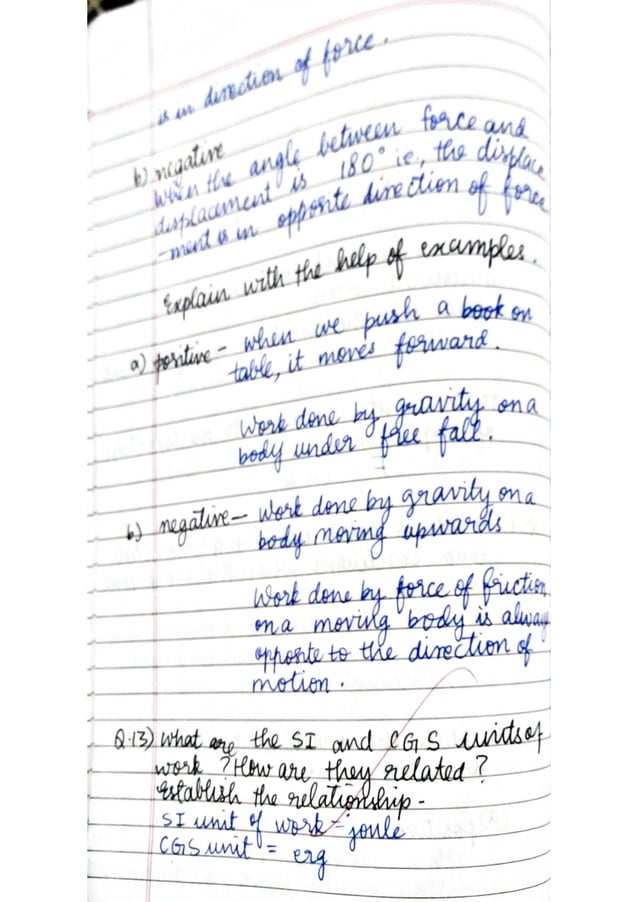 is in direction of force.
b) negative
When the angle between force and
displacement is 180° ie., the displace
-ment is in opposite direction of force
Explain with the help of examples.
a) positive - when we push a book on
table, it moves forward.
Work done by gravity on a
body under free fall.
b) negative - Work done by gravity on a
body moving upwards
Work done by force of friction
on a moving body is always
opposite to the direction of
motion.
Q.13) What are the SI and CGS units of
work ? How are they related ?
Establish the relationship -
SI unit of work = joule
CGS unit = erg